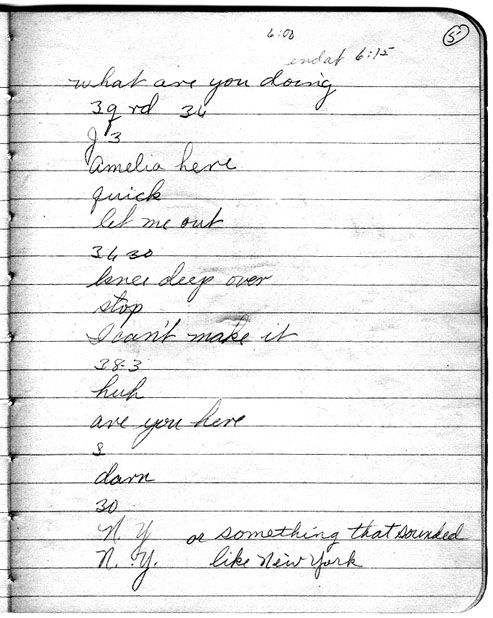 6:00
5
end at 6:15
what are you doing
3q rd 36
J 3
Amelia here
quick
let me out
36 30
knee deep over
stop
I can't make it
38-3
huh
are you here
8
darn
30
N. Y or something that sounded
N. Y. like New York